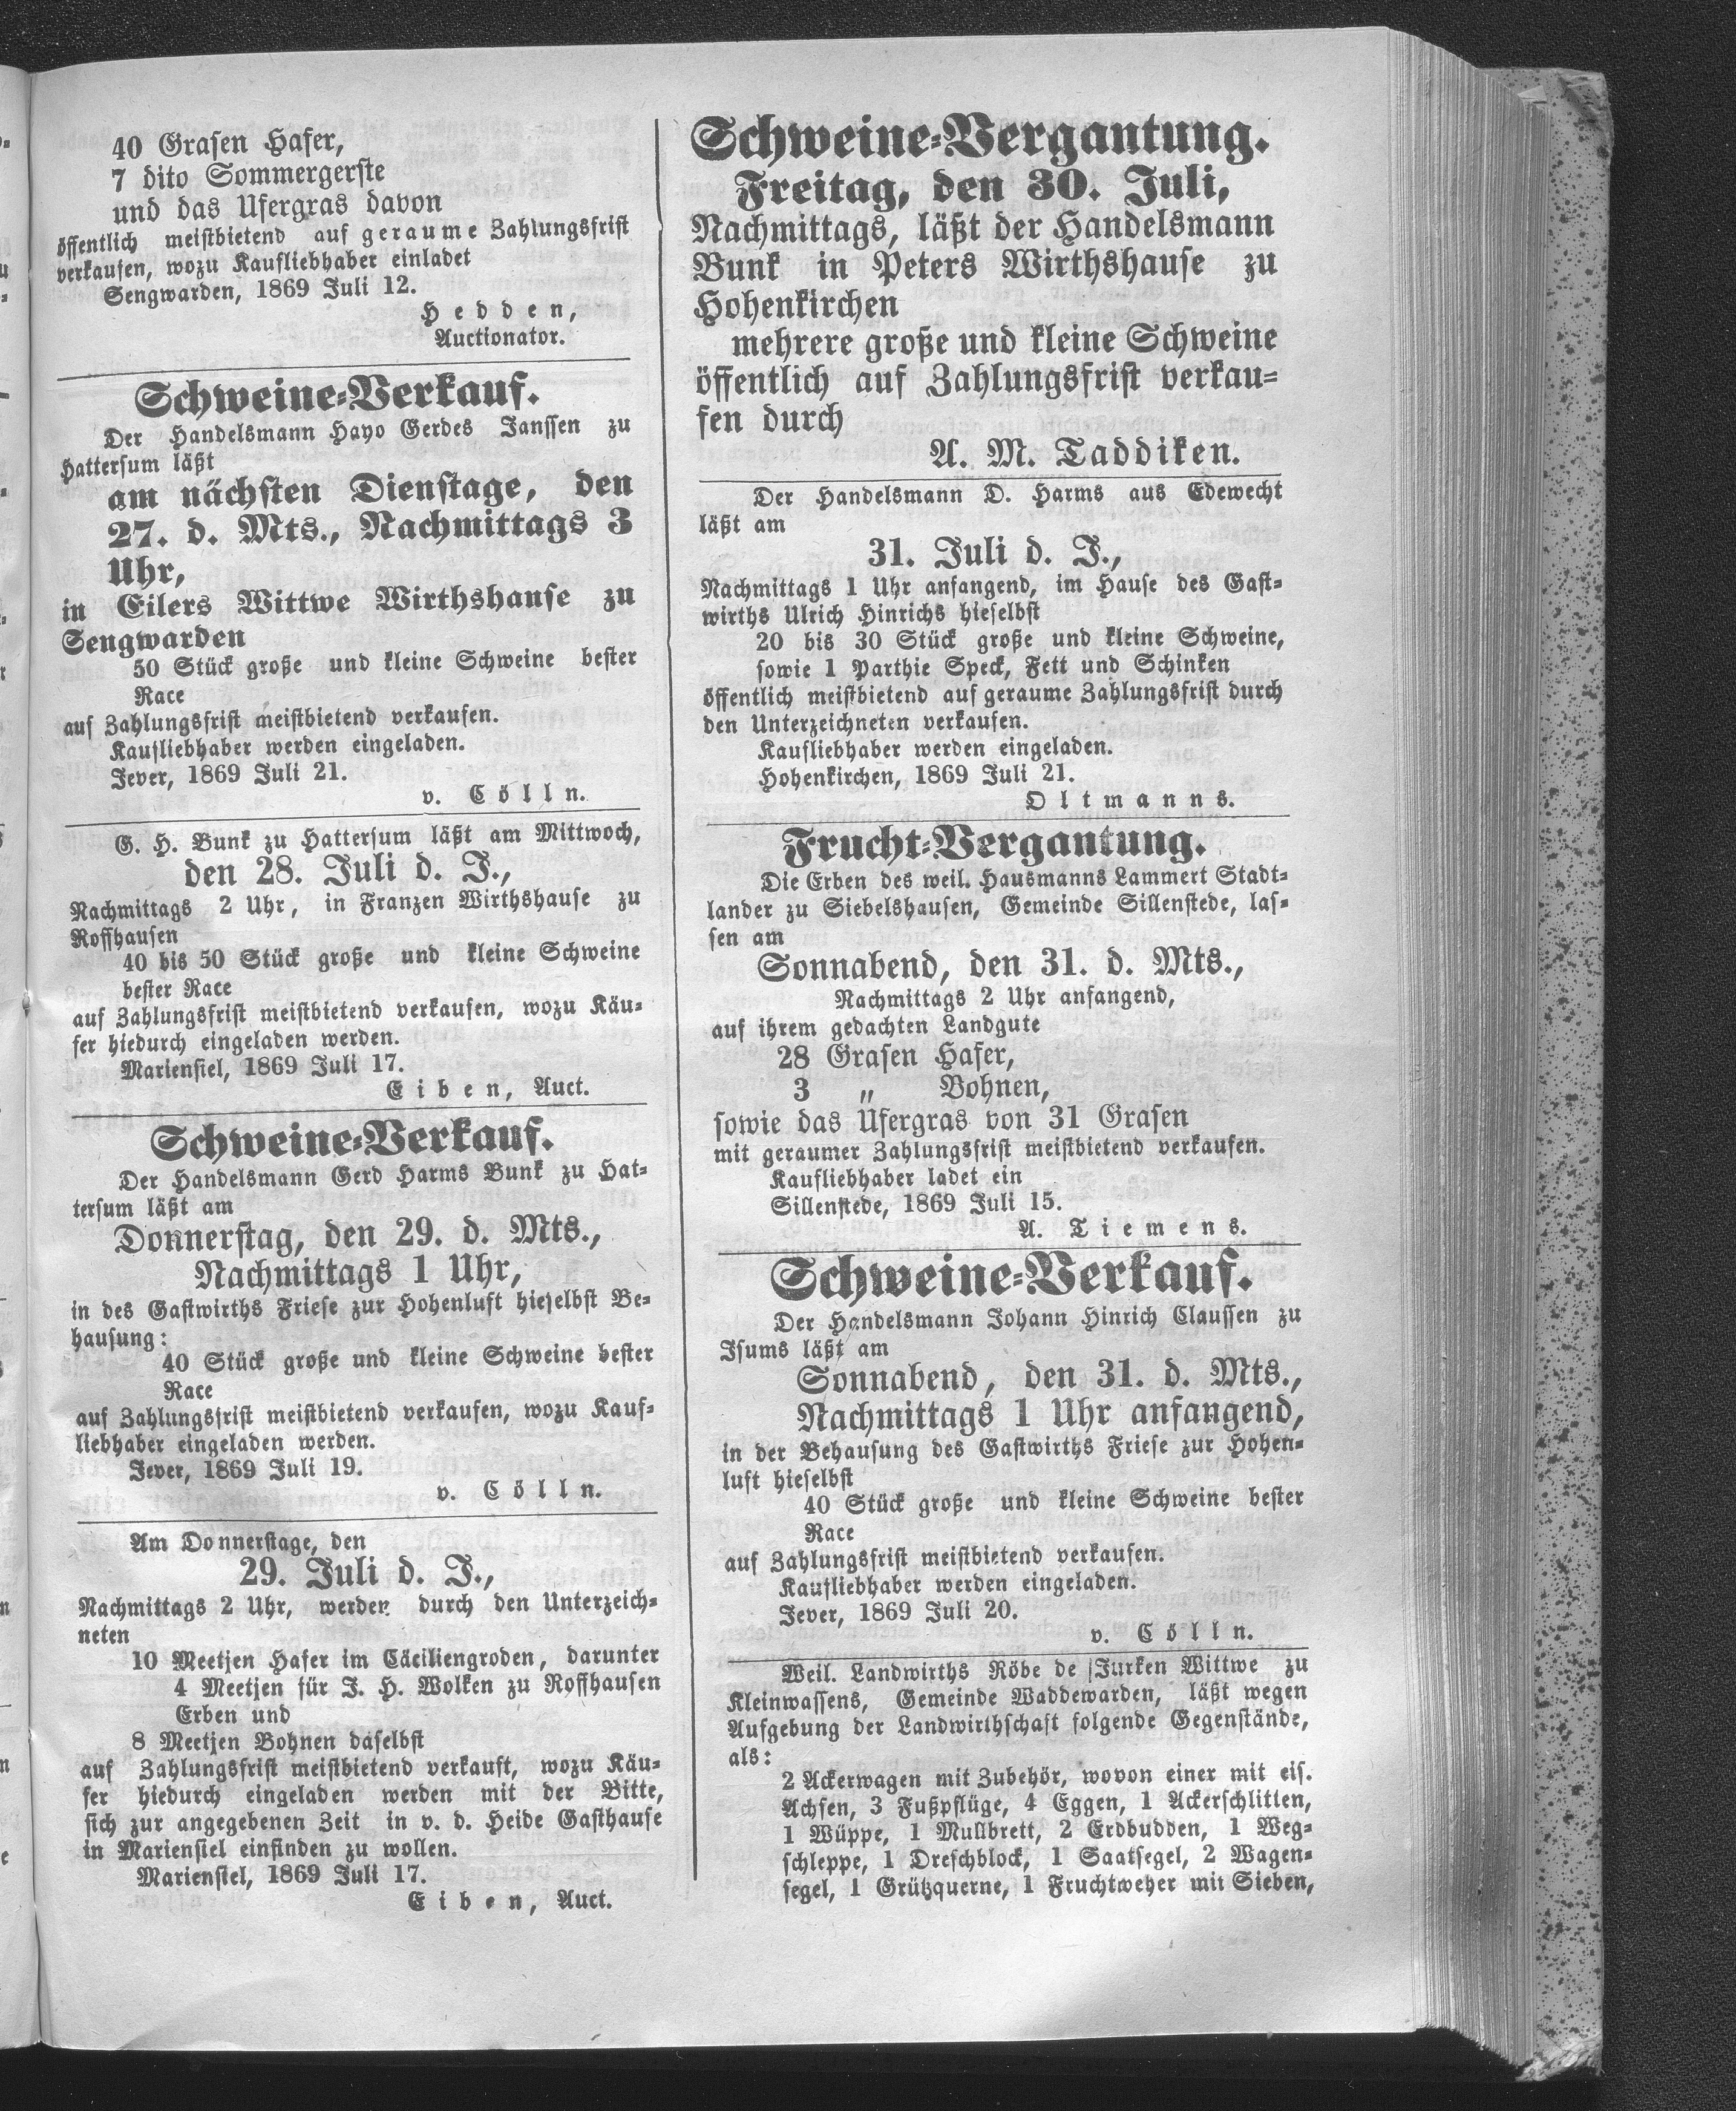 40 Grasen Hafer,
7 dito Sommergerste
und das Ufergras davon
öffentlich meistbietend auf geraume Zahlungsfrist
verkaufen, wozu Kaufliebhaber einladet
Sengwarden, 1869 Juli 12.
Hedden,
Auctionator.
Schweine-Verkauf.
Der Handelsmann Hayo Gerdes Janssen zu
Hattersum läßt
am nächsten Dienstage, den
27. d. Mts., Nachmittags 3
Uhr,
in Eilers Wittwe Wirthshause zu
Sengwarden
50 Stück große und kleine Schweine bester
Race
auf Zahlungsfrist meistbietend verkaufen.
Kaufliebhaber werden eingeladen.
Jever, 1869 Juli 21.
v. Cölln.
G. H. Bunk zu Hattersum läßt am Mittwoch,
den 28. Juli d. J.,
Nachmittags 2 Uhr, in Franzen Wirthshause zu
Roffhausen
40 bis 50 Stück große und kleine Schweine
bester Race
auf Zahlungsfrist meistbietend verkaufen, wozu Käu-
fer hiedurch eingeladen werden.
Mariensiel, 1869 Juli 17.
Eiben, Auct.
Schweine-Verkauf.
Der Handelsmann Gerd Harms Bunk zu Hat-
tersum läßt am
Donnerstag, den 29. d. Mts.,
Nachmittags 1 Uhr,
in des Gastwirths Friese zur Hohenluft hieselbst Be-
hausung:
40 Stück große und kleine Schweine bester
Race
auf Zahlungsfrist meistbietend verkaufen, wozu Kauf-
liebhaber eingeladen werden.
Jever, 1869 Juli 19.
v. Cölln.
Am Donnerstage, den
29. Juli d. J.,
Nachmittags 2 Uhr, werden durch den Unterzeich-
neten
10 Meetjen Hafer im Cäciliengroden, darunter
4 Meetjen für J. H. Wolken zu Roffhausen
Erben und
8 Meetjen Bohnen daselbst
auf Zahlungsfrist meistbietend verkauft, wozu Käu-
fer hiedurch eingeladen werden mit der Bitte,
sich zur angegebenen Zeit in v. d. Heide Gasthause
in Mariensiel einfinden zu wollen.
Mariensiel, 1869 Juli 17.
Eiben, Auct.
Schweine-Vergantung.
Freitag, den 30. Juli,
Nachmittags, läßt der Handelsmann
Bunk in Peters Wirthshause zu
Hohenkirchen
mehrere große und kleine Schweine
öffentlich auf Zahlungsfrist verkau-
fen durch
A. M. Taddiken.
Der Handelsmann D. Harms aus Edewecht
läßt am
31. Juli d. J.,
Nachmittags 1 Uhr anfangend, im Hause des Gast-
wirths Ulrich Hinrichs hieselbst
20 bis 30 Stück große und kleine Schweine,
sowie 1 Parthie Speck, Fett und Schinken
öffentlich meistbietend auf geraume Zahlungsfrist durch
den Unterzeichneten verkaufen.
Kaufliebhaber werden eingeladen.
Hohenkirchen, 1869 Juli 21.
Oltmanns.
Frucht-Vergantung.
Die Erben des weil. Hausmanns Lammert Stadt-
lander zu Siebelshausen, Gemeinde Sillenstede, las-
sen am
Sonnabend, den 31. d. Mts.,
Nachmittags 2 Uhr anfangend,
auf ihrem gedachten Landgute
28 Grasen Hafer,
3 " Bohnen,
sowie das Ufergras von 31 Grasen
mit geraumer Zahlungsfrist meistbietend verkaufen.
Kaufliebhaber ladet ein
Sillenstede, 1869 Juli 15.
A. Tiemens.
Schweine-Verkauf.
Der Handelsmann Johann Hinrich Claussen zu
Isums läßt am
Sonnabend, den 31. d. Mts.,
Nachmittags 1 Uhr anfangend,
in der Behausung des Gastwirths Friese zur Hohen-
luft hieselbst
40 Stück große und kleine Schweine bester
Race
auf Zahlungsfrist meistbietend verkaufen.
Kaufliebhaber werden eingeladen.
Jever, 1869 Juli 20.
v. Cölln.
Weil. Landwirths Röbe de Jurken Wittwe zu
Kleinwassens, Gemeinde Waddewarden, läßt wegen
Aufgebung der Landwirthschaft folgende Gegenstände,
als:
2 Ackerwagen mit Zubehör, wovon einer mit eis.
Achsen, 3 Fußpflüge, 4 Eggen, 1 Ackerschlitten,
1 Wüppe, 1 Mullbrett, 2 Erdbudden, 1 Weg-
schleppe, 1 Dreschblock, 1 Saatsegel, 2 Wagen-
segel, 1 Grützquerne, 1 Fruchtweher mit Sieben,